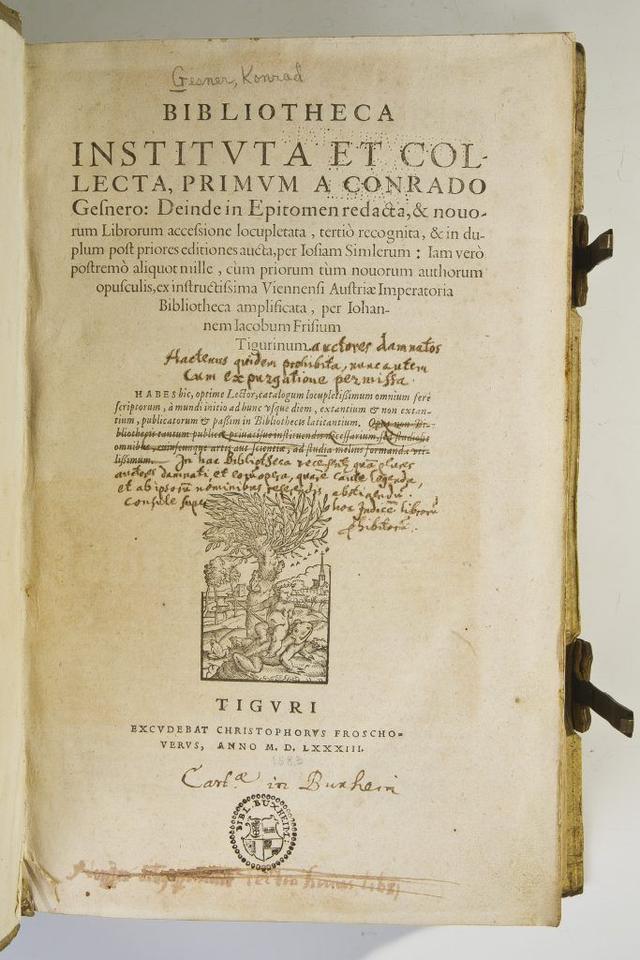 Gesner, Konrad
BIBLIOTHECA
INSTITVTA ET COL-
LECTA, PRIMVM A CONRADO
Geſnero: Deinde in Epitomen redacta, & nouo-
rum Librorum acceſsione locupletata, tertiò recognita, & in du-
plum poſt priores editiones aucta, per Ioſiam Simlerum: Iam verò
poſtremò aliquot mille, cùm priorum tùm nouorum authorum
opuſculis, ex inſtructiſsima Viennenſi Auſtriæ Imperatoria
Bibliotheca amplificata, per Iohan-
nem Iacobum Friſium
Tigurinum. auctores damnatos
Hactenus quidem prohibita, nunc autem
Cum expurgatione permissa.
HABES hic, optime Lector, catalogum locupletiſsimum omnium ferè
ſcriptorum, à mundi initio ad hunc vſque diem, extantium & non extan-
tium, publicatorum & paßim in Bibliothecis latitantium. Opus non Bi-
bliothecis tantum publicis priuatiſue inſtituendis neceſſarium, ſed ſtudioſis
omnibus, cuiuſcunque artis aut ſcientiæ, ad ſtudia melius formanda vti-
lißimum. In hac Bibliotheca plures
auctores damnati et eorum opera, quare caute legenda,
et ab ipsorum nominibus abstinendum.
Consule Indicem librorum
prohibitorum.
TIGVRI
EXCVDEBAT CHRISTOPHORVS FROSCHO-
VERVS, ANNO M. D. LXXXIII.
1583
Cartæ in Buxheim
BIBL. BUXHEIM.